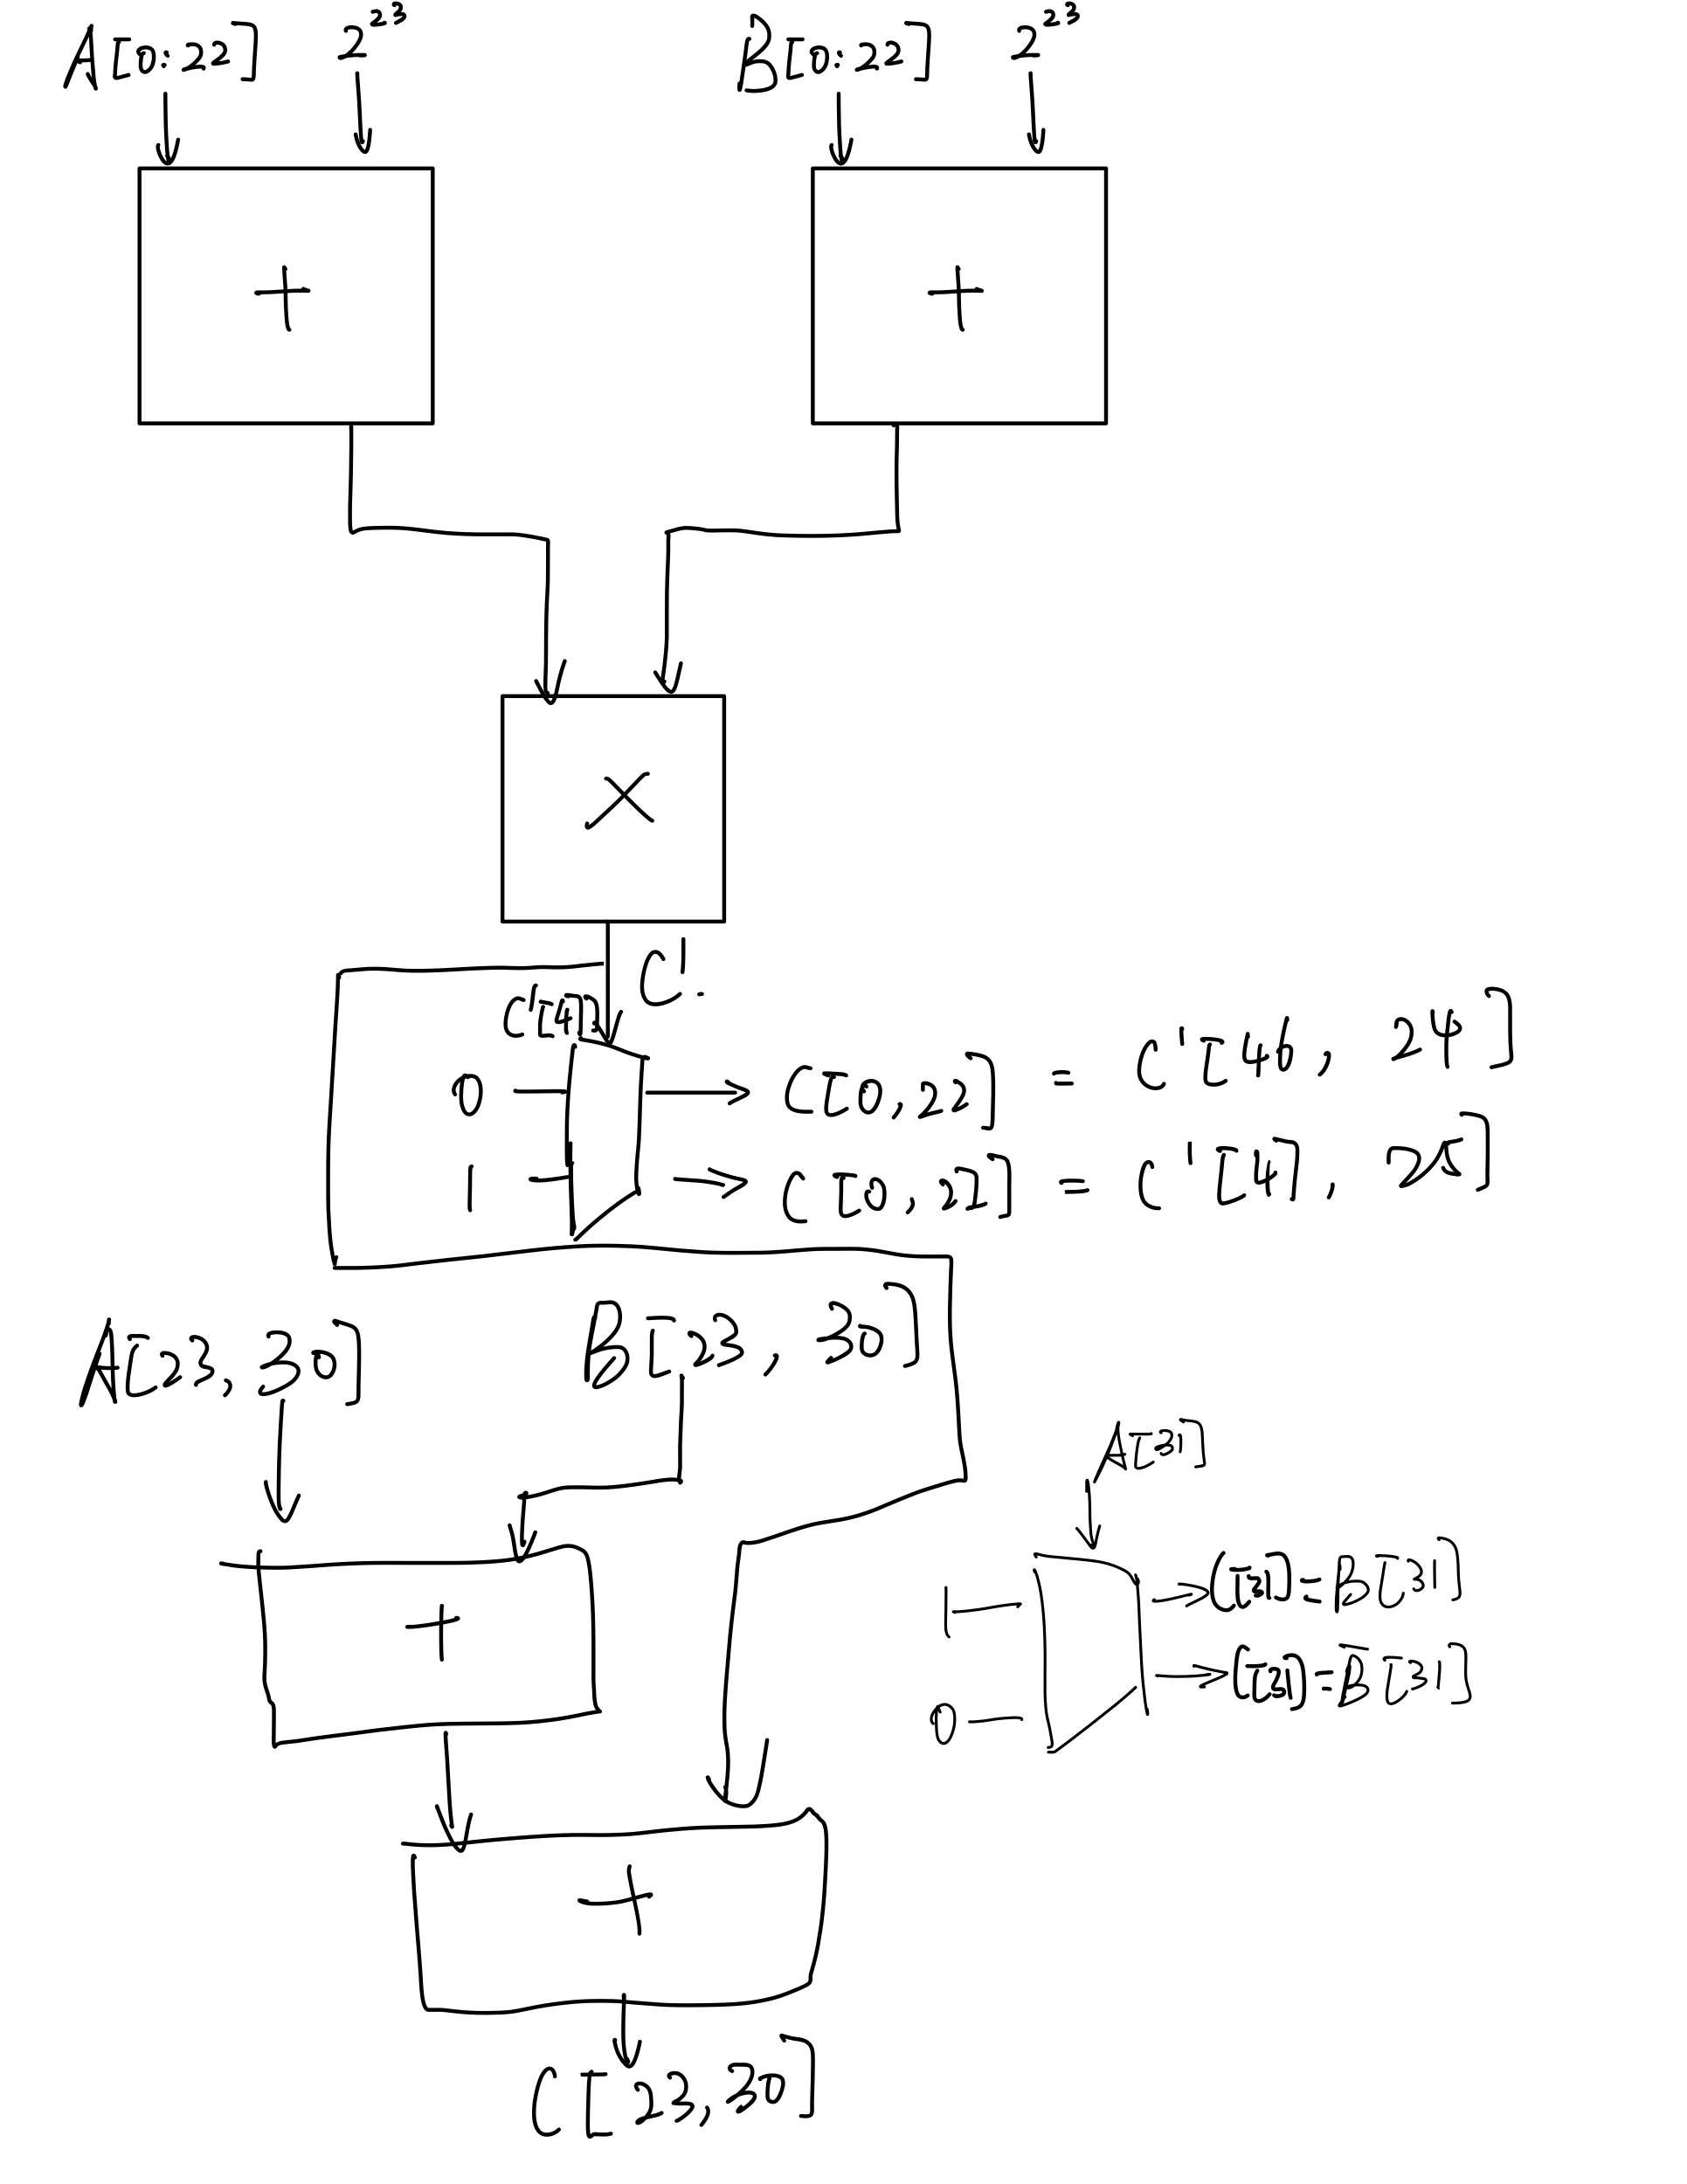 A[0:22] 2^23 B[0:22] 2^23
+ +
×
C'
C'[47]
0 C[0,22] = C'[46, 24]
1 C[0,22] = C'[47, 25]
A[23,30] B[23, 30]
A[31]
1 C[31]=B[31]
+ C[31]=B̅[31]
0
+
C[23,30]